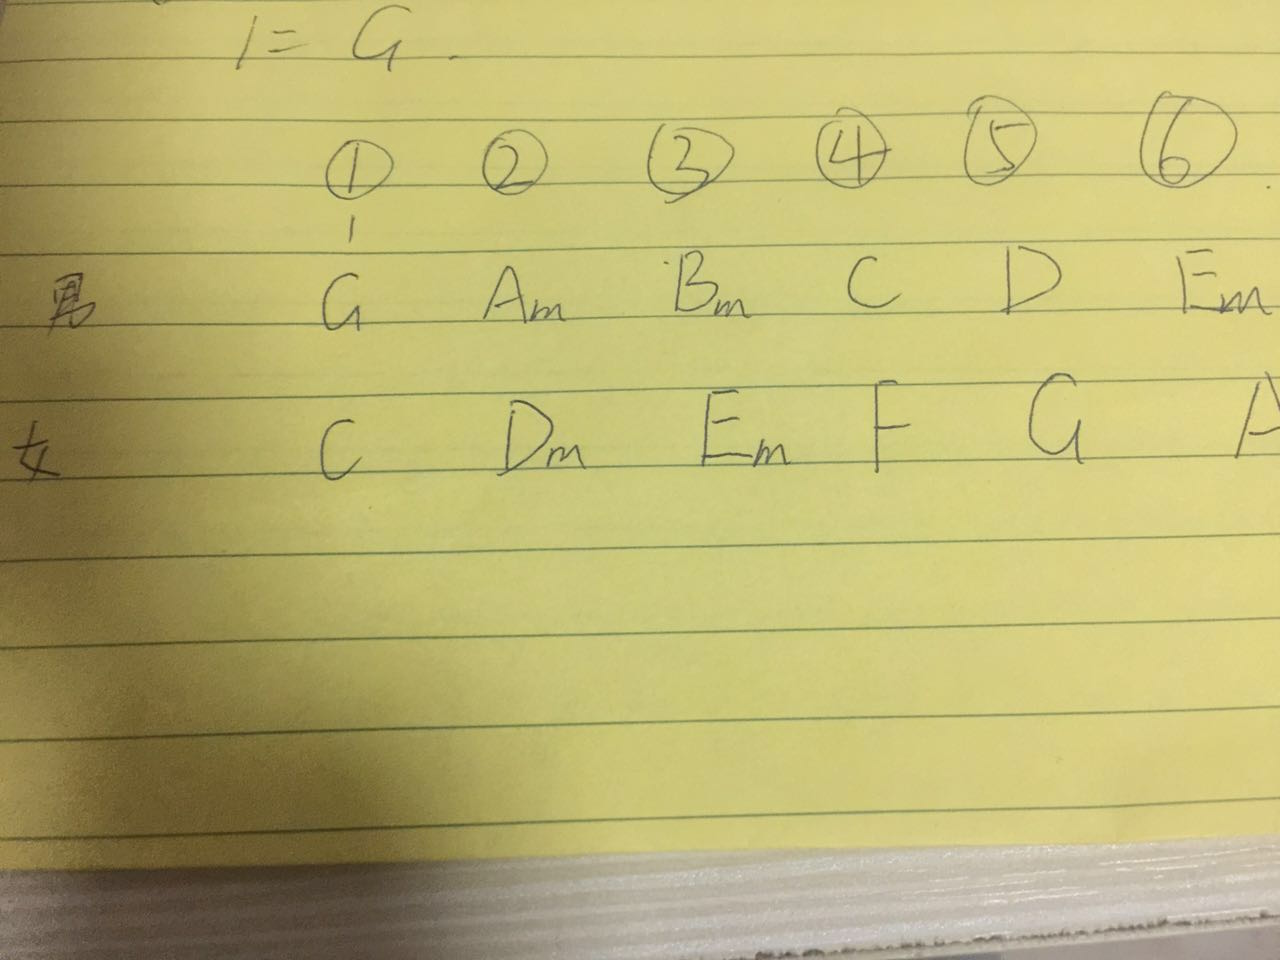 1= G.
① ② ③ ④ ⑤ ⑥
1
男 G Am Bm C D Em
女 C Dm Em F G A